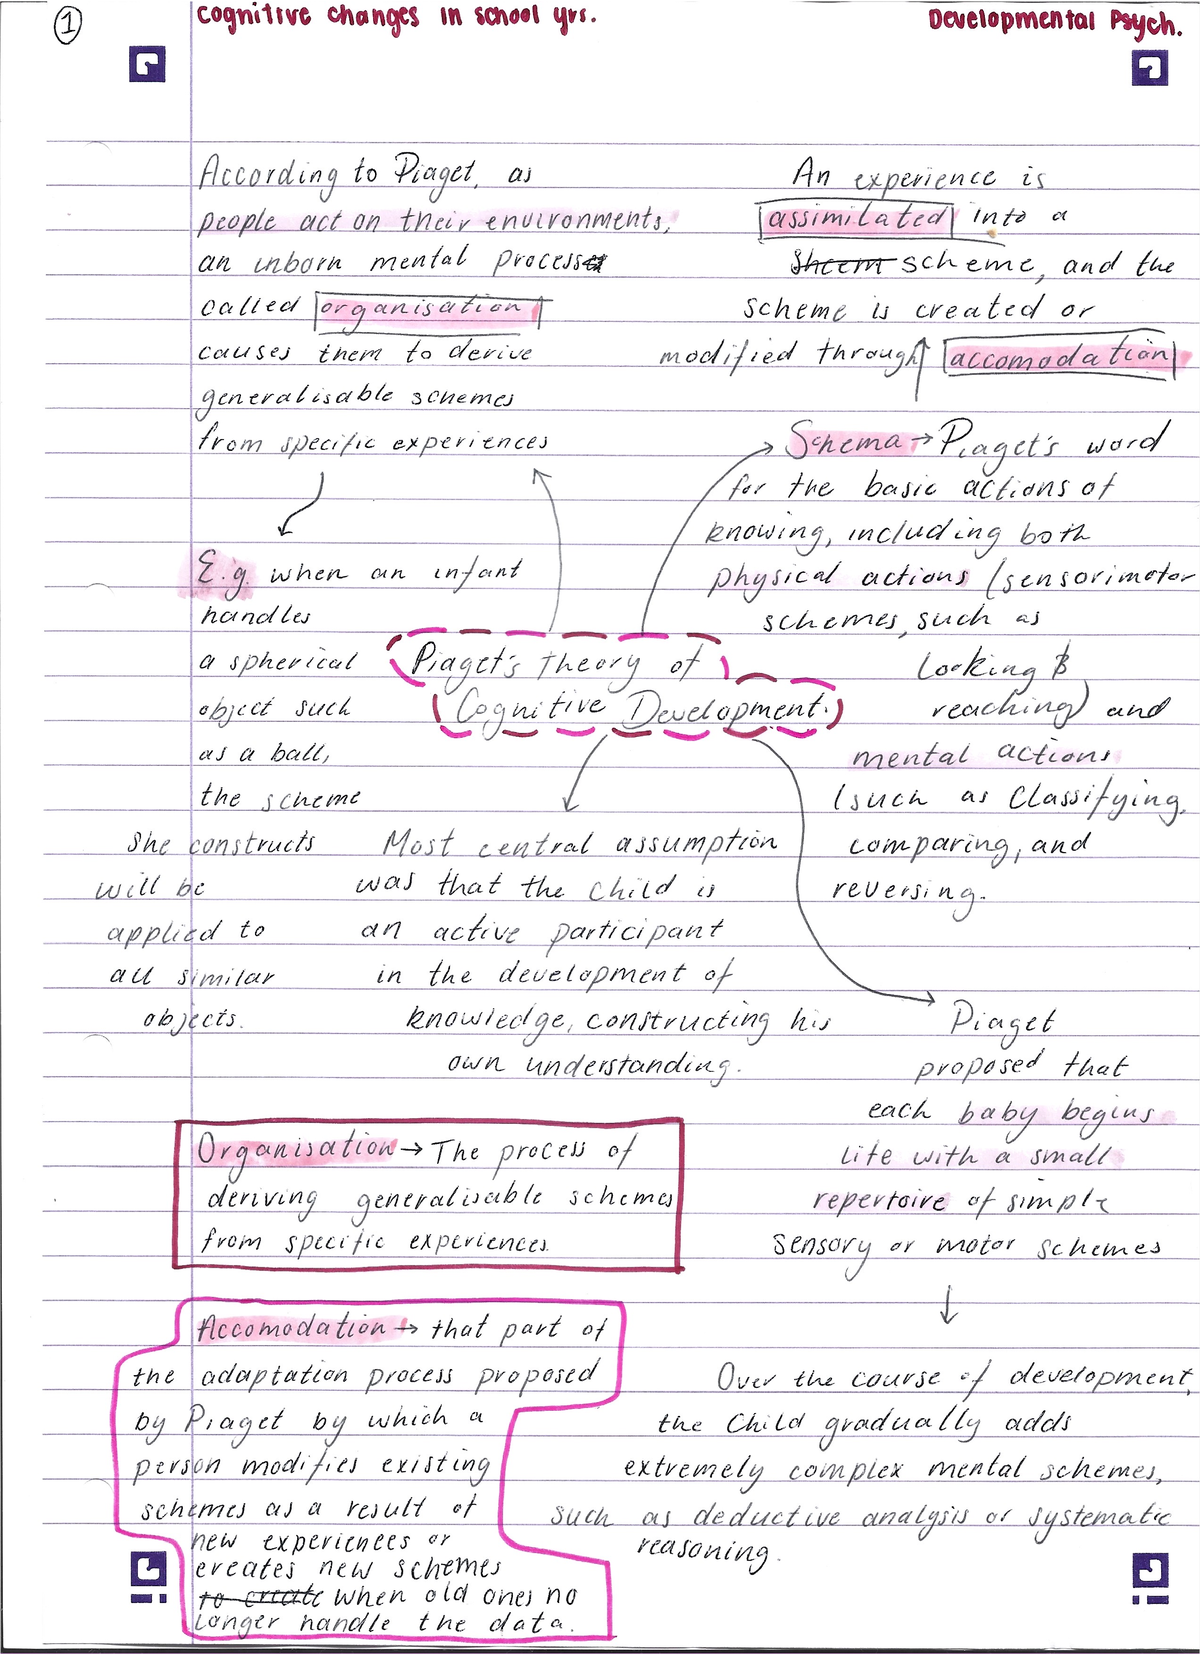 1
Cognitive changes in school yrs.
Developmental Psych.
According to Piaget, as
people act on their environments,
an inborn mental process
called organisation
causes them to derive
generalisable schemes
from specific experiences
E.g. when an infant
handles
a spherical
object such
as a ball,
the scheme
she constructs
will be
applied to
all similar
objects.
An experience is
assimilated into a
scheme, and the
scheme is created or
modified through accomodation
Schema → Piaget's word
for the basic actions of
knowing, including both
physical actions (sensorimotor
schemes, such as
looking &
reaching) and
mental actions
(such as classifying,
comparing, and
reversing.
Piaget's Theory of
Cognitive Development.
Most central assumption
was that the child is
an active participant
in the development of
knowledge, constructing his
own understanding.
Piaget
proposed that
each baby begins
life with a small
repertoire of simple
sensory or motor schemes
Over the course of development,
the child gradually adds
extremely complex mental schemes,
such as deductive analysis or systematic
reasoning.
Organisation → The process of
deriving generalisable schemes
from specific experiences.
Accomodation → that part of
the adaptation process proposed
by Piaget by which a
person modifies existing
schemes as a result of
new experiences or
creates new schemes
to create when old ones no
longer handle the data.